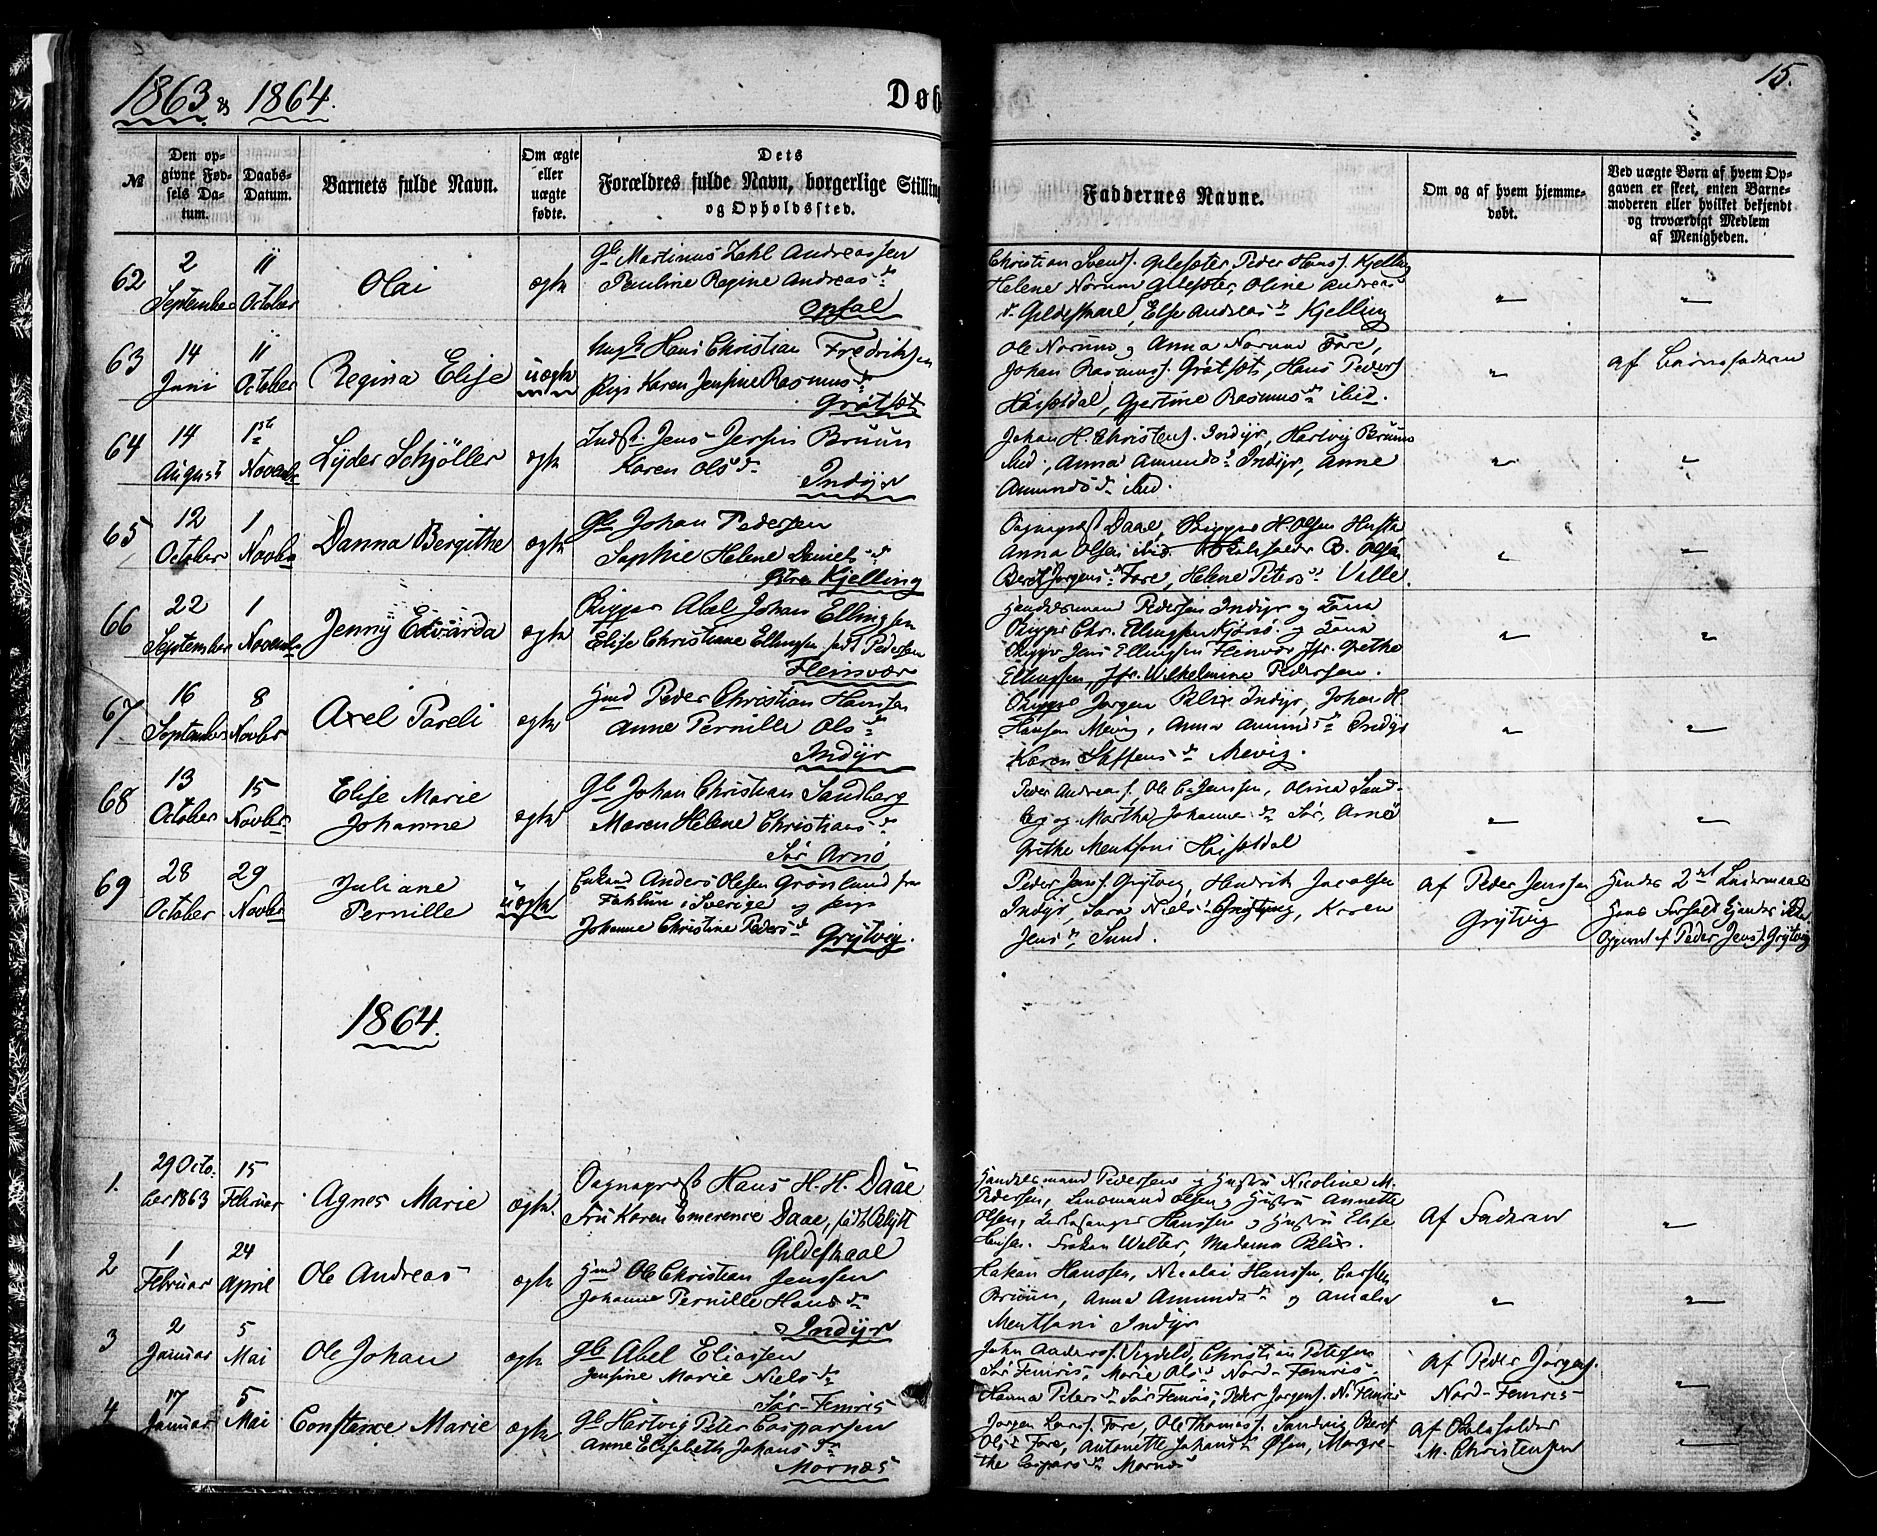 1863 & 1864.
Døb
15.
№
Den op-
givne Fød-
sels Da-
tum.
Daabs-
Datum.
Barnets fulde Navn.
Om ægte
eller
uægte
fødte.
Dets
Forældres fulde Navn, borgerlige Stilling
og Opholdssted.
Faddernes Navne.
Om og af hvem hjemme-
døbt.
Ved uægte Børn af hvem Op-
gaven er skeet, enten Barne-
moderen eller hvilket bekjendt
og troværdigt Medlem
af Menigheden.
62
2
September
11
October
Olai
ægte
Gb Martinus Zahl Andreassen
Pauline Regine Andreasdr
Opsal
Christian Svends. Gilesæter, Peder Hans. Kjelling
Helene Norum Gilesæter, Oline Andreas
dr Gildeskaal, Else Andreasdr Kjelling
63
14
Juni
11
October
Regina Elise
uægte
Ungk Hans Christian Fredriksen
Pige Karen Jensine Rasmusdr
Grøtsæt
Ole Norum og Anna Norum Fore,
Johan Rasmuss. Grøtsæt, Hans Peders
Gjertine Rasmusdr ibid.
af Barnefaderen
64
14
August
1st
Novembr
Lyder Schjöller
ægte
Indst. Jens Jersin Bruun
Karen Olsdr
Indyr
Johan H. Christens. Indyr, Hartvig Bruuns
ibid, Anna Amundsd Indyr, Anne
Amundsdr ibid.
65
12
October
1
Novbr
Danna Bergithe
ægte
Gb Johan Pedersen
Sophie Helene Danielsdr
Øtre Kjelling
Sognepræst Daae, Skipper H. Olsen
Anna Olsen ibid. B. Olsen
Beret Jørgensdr Fore, Helene Petersdr Valle.
66
22
September
1
Novembr
Jenny Edvarda
ægte
Skipper Abel Johan Ellingsen
Elise Christiane Ellingsen født Pedersen
Fleinvær
Handelsmand Pedersen Indyr og Kone
Skipper Chr. Ellingsen og Kone
Skipper Jens Ellingsen Fleinvær Jfr. Grethe
Ellingsen, Jfr. Wilhelmine Pedersen.
67
16
September
8
Novbr
Axel Pareli
ægte
Hmd Peder Christian Hansen
Anne Pernille Olsdr
Indyr
Skipper Jørgen Blix Indyr, Johan H.
Hansen Mevig, Anna Amundsdr Indyr
Karen Staffensdr Mevig.
68
13
October
15
Novbr
Elise Marie
Johanne
ægte
Gb Johan Christian Sandberg
Maren Helene Christiansdr
Sør Arnø
Peder Andreas. Ole C. Jenssen, Olina Sand-
berg og Martha Johannesdr Sør Arnø
Grethe Mentsoni
69
28
October
29
Novbr
Juliane
Pernille
uægte
Enkemd Anders Olsen Grønlund fra
Fahlun i Sverige og Pige
Johanne Christine Pedersdr
Grytvig.
Peder Jenss. Grytvig, Hendrik Jacobsen
Indyr, Sara Nielsd Grytvig, Karen
Jensdr Sund.
af Peder Jenssen
Grytvig
Hendes 2det Leiermaal
Hans Forhold kjendes ikke
Opgivet af Peder Jens. Grytvig
1864.
1.
29 Octo-
ber 1863
15
Februar
Agnes Marie
ægte.
Sognepræst Hans H. H. Daae
Fru Karen Emerence Daae, født Blytt
Gildeskaal
Handelsmand Pedersen og Hustru Nicoline M.
Pedersen, Lensmand Olsen og Hustru Annette
Olsen, Kirkesanger Hanssen og Hustru Elise
Hansen. Frøken Walter, Madame Blix.
Af Faderen
2
1
Februar
24
April
Ole Andreas
ægte
Hmd Ole Christian Jenssen
Johanne Pernille Hansdr
Indyr
Hakan Hanssen, Nicolai Hanssen, Carsten
Bruun, Anna Amundsdr og Amalia
Mentsoni Indyr
3
2
Januar
5
Mai
Ole Johan
ægte
Gb Abel Eliassen
Jensine Marie Nielsdr
Sør-Femris
John Anders. Christian Petersen
Sør Femris, Marie Olsd Nord-Femris
Hanna Petersdr Sør Femris, Peder Jørgens. N. Femris
af Peder Jørgens.
Nord-Femris
4
17
Januar
5
Mai
Constance Marie
ægte
Gb Hartvig Peter Caspersen
Anne Elisabeth Johansdr
Mornæs
Jørgen Lars. Fore, Ole Thomas. Sandvig, Beret
Olsd Fore, Antonette Johansdr Øsen, Margre-
the Caspersdr Mornæs
af
M. Christensen